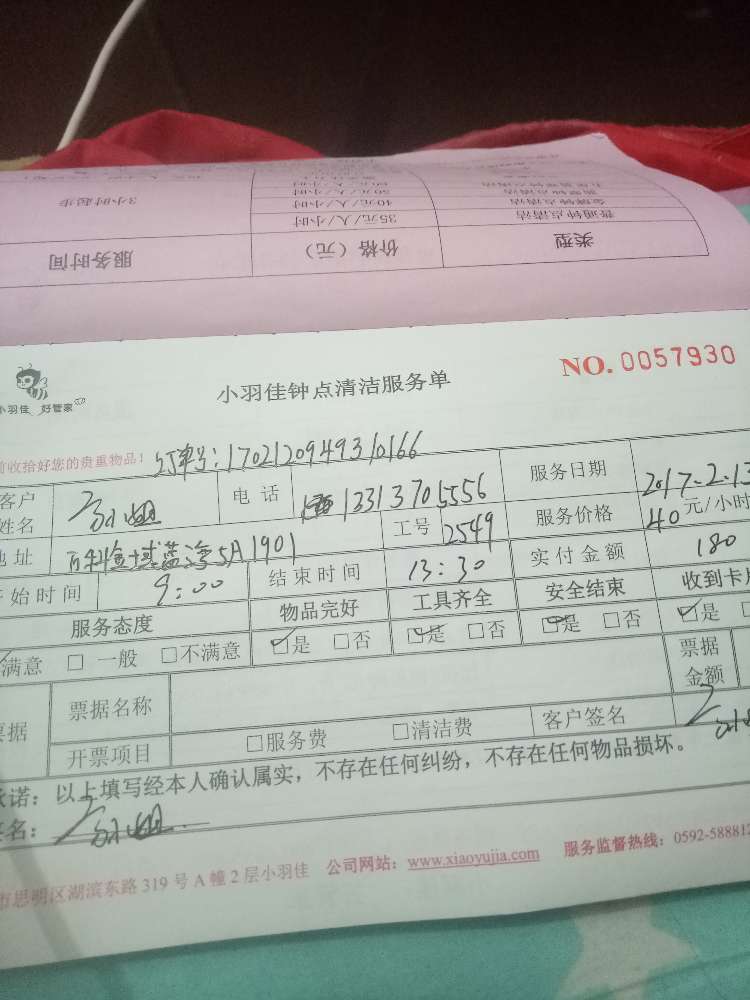 类型 价格（元） 服务时间
普通钟点清洁 35元/人/小时 3小时起步
金牌钟点清洁 40元/人/小时
50元/人/小时
小羽佳 好管家
小羽佳钟点清洁服务单
NO. 0057930
前收拾好您的贵重物品！ 订单号：170212094930166
客户姓名 电话 13313705556 服务日期 2017.2.13
地址 5A1901 工号 2549 服务价格 40元/小时
开始时间 9:00 结束时间 13:30 实付金额 180
服务态度 物品完好 工具齐全 安全结束 收到卡
满意 □ 一般 □不满意 ☑是 □否 ☑是 □否 ☑是 □否 ☑是
票据 票据名称 票据金额
开票项目 □服务费 □清洁费 客户签名
承诺：以上填写经本人确认属实，不存在任何纠纷，不存在任何物品损坏。
签名：
市思明区湖滨东路319号A幢2层小羽佳 公司网站：www.xiaoyujia.com 服务监督热线：0592-588812